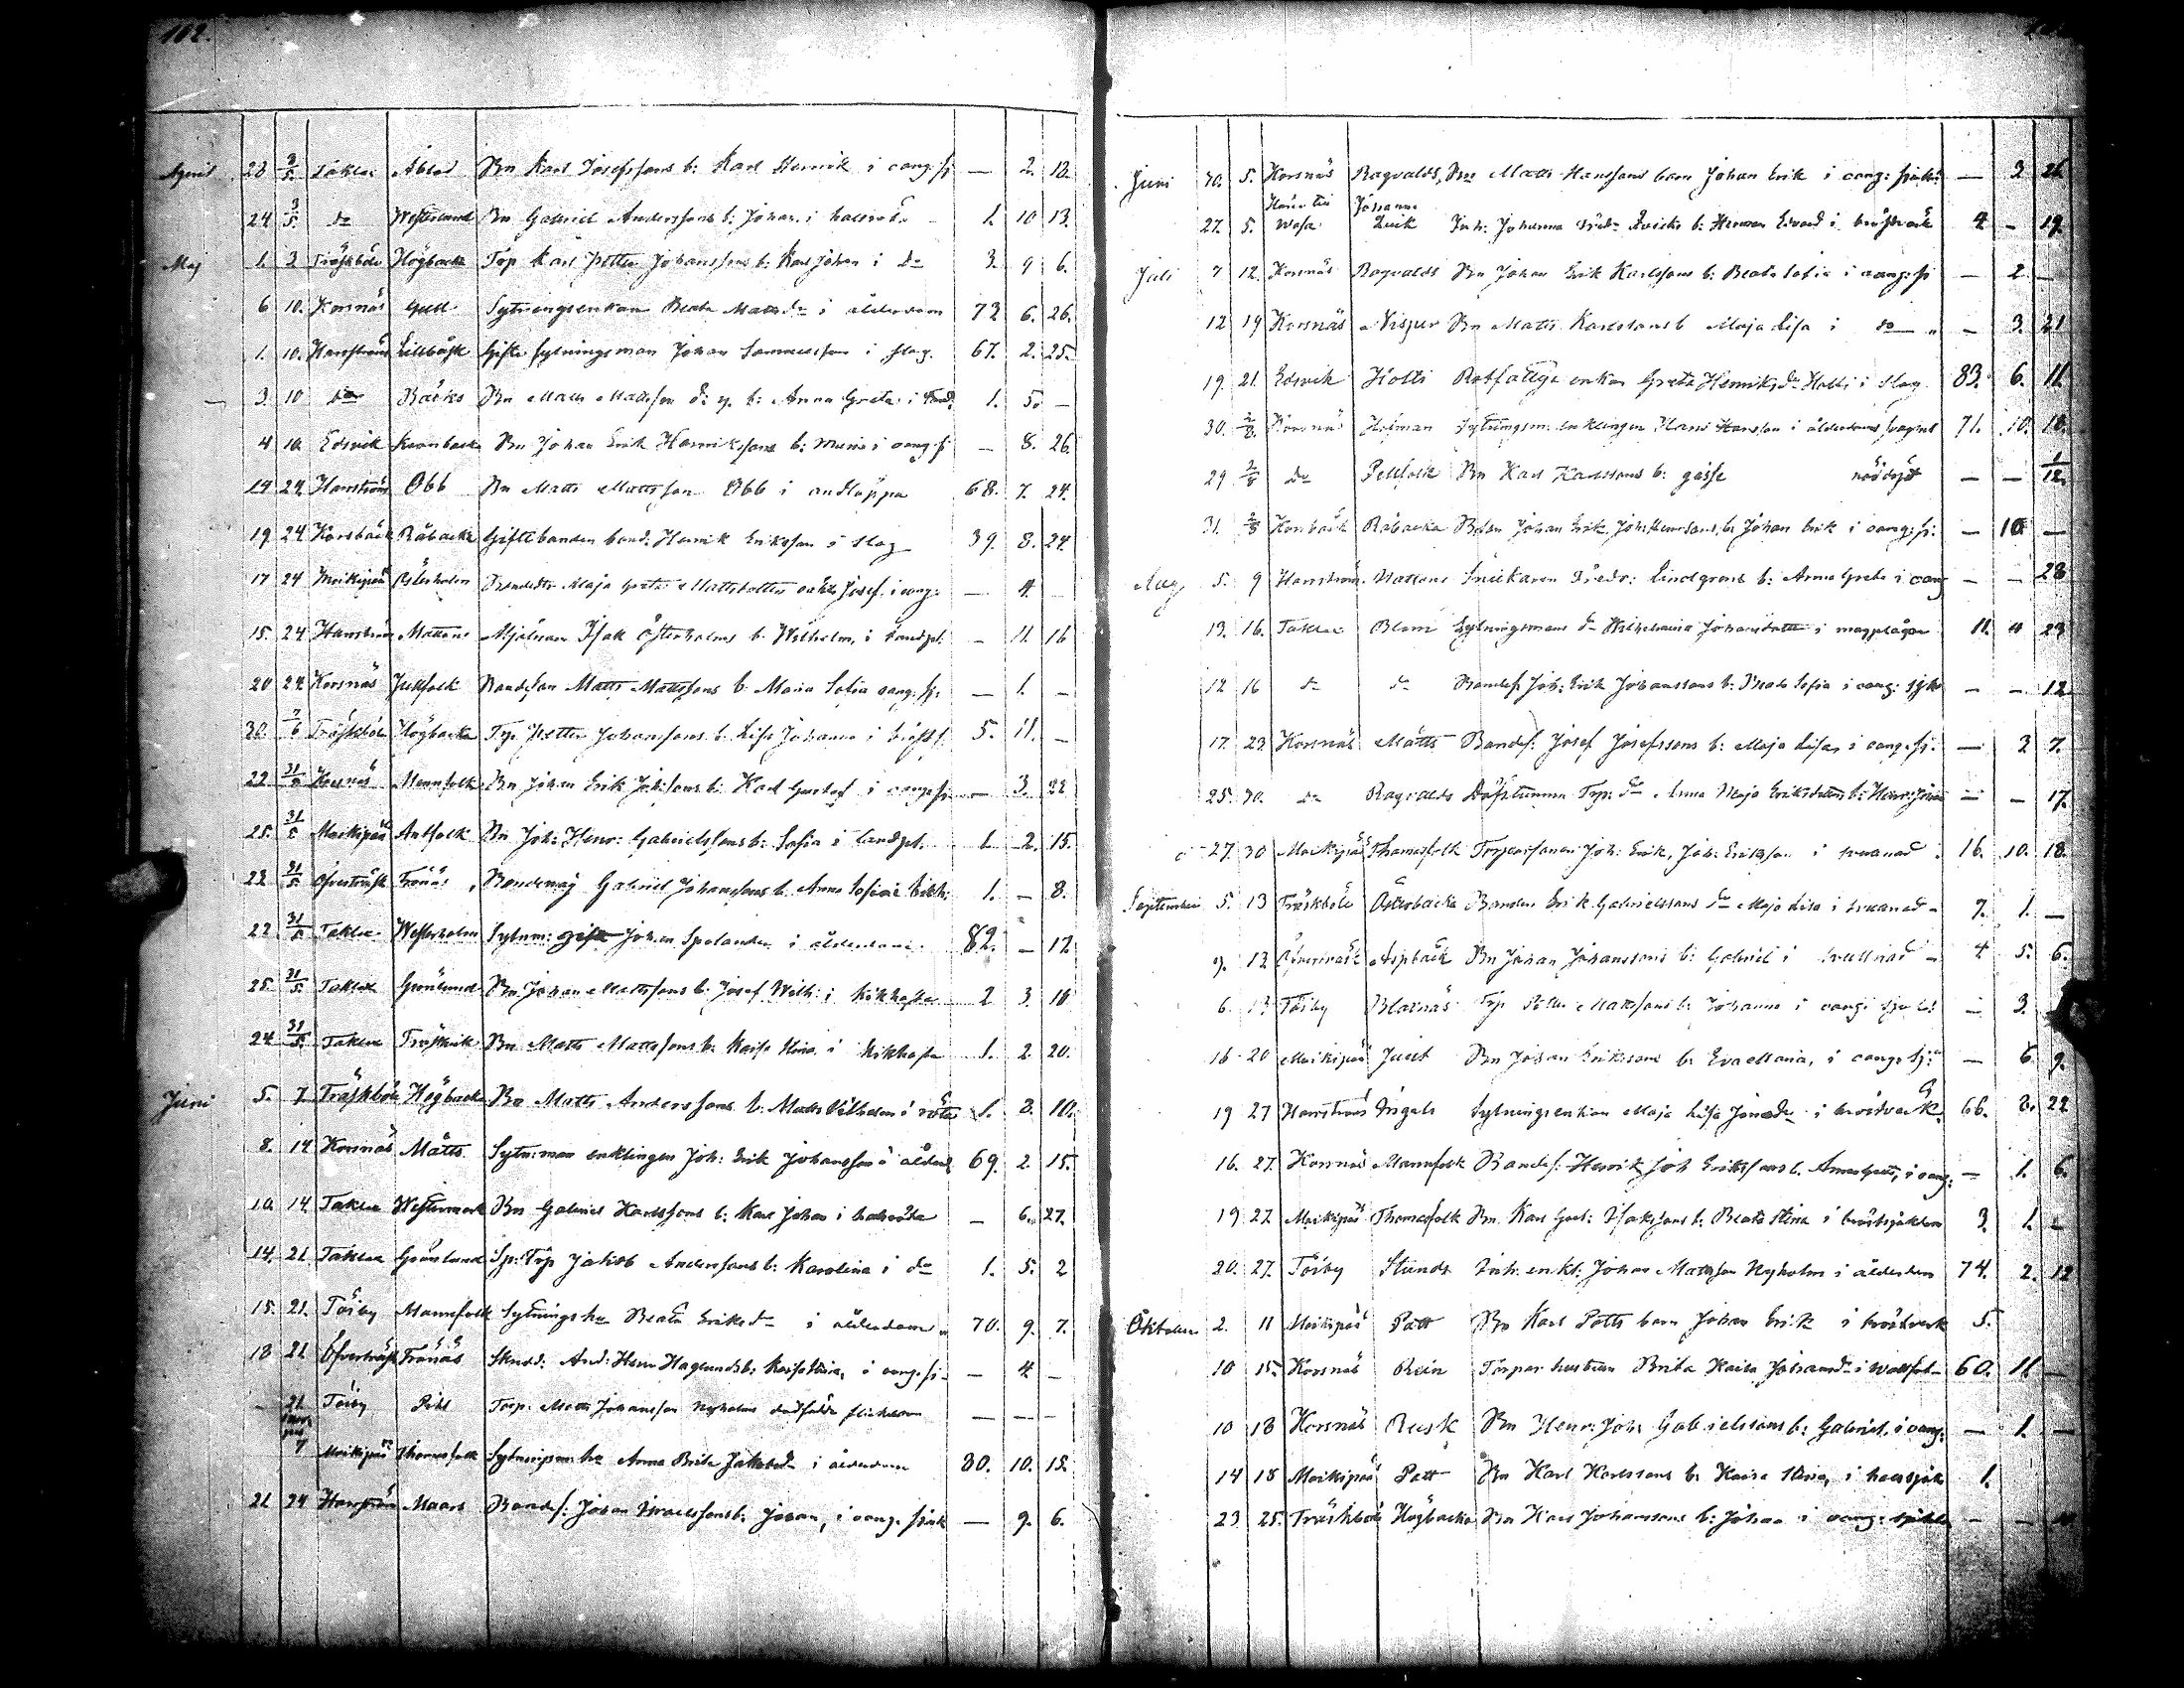 102.
April 28 3/5 Taklax Åblad Bn Karl Josefssons b: Karl Henrik i oang: sj — 2. 18.
24 3/5. do Westerlund Bn Gabriel Anderssons b: Johan i halsröta 1. 10 13.
Maj 1. 3 Träskböle Högbacka Torp Karl Petter Johanssons b: Karl Johan i do 3. 9 6.
6 10. Korsnäs Gull Sytningsenkan Beata Mattsdr i ålderdom 72 6. 26.
1. 10. Harrström Lillbåsk Gifte sytningsman Johan Samuelsson i slag. 67. 2. 25.
3. 10 do Backs Bn Matts Mattsson d: y. b: Anna Greta i 1. 5. —
4 10. Edsvik Bn Johan Erik Henrikssons b: Maria i oang: sj — 8. 26.
14 24 Harrström Obb Bn Matts Mattsson Obb i andtäppa 68. 7. 24.
19 24 Korsbäck Råbacka Gifte bonden Henrik Eriksson i slag 39. 8. 24.
17 24 Moikipää Österholm Maja Greta Mattsdotters oäkta Josef i oang: — 4. —
15. 24 Harrström Mattans Mjölnaren Isak Österholms b. Wilhelm, i tandspr. — 11 16
20 24 Korsnäs Juthfolk Bondeson Matts Mattssons b. Maria Sofia oang: sj: — 1. —
30. 7/6 Träskböle Högbacka Tp. Petter Johanssons b. Lisa Johanna i bröstsj. 5. 11. —
22 31/5 Korsnäs Mannfolk Bn Johan Erik Johssons b: Karl Gustaf i oang: sj — 3. 22
25. 31/5 Moikipää Antfolk Bn Joh: Henr: Gabrielssons b: Sofia i tandspr. 1. 2. 15.
22 31/5. Öfverträsk Tronäs Bondemåg Gabriel Johanssons b. Anna Sofia i kikh: 1. — 8.
22 31/5 Taklax Westerholm Sytnm: gift Johan Spelander i ålderdom. 82. — 12
25. 31/5. Taklax Grönlund Bn Johan Mattssons b: Josef Wilh: i kikhosta 2 3. 10
24 31/5. Taklax Träskvik Bn Matts Mattssons b: Kaisa Stina i kikhosta 1. 2 20.
Juni 5. 7. Träskböle Högbacka Bn Matts Anderssons b. Matts Vilhelm i röta 1. 3. 10.
8. 14 Korsnäs Mätts Sytn: man enklingen Joh: Erik Johansson i ålderd 69. 2 15.
10. 14 Taklax Westermark Bn Gabriel Karlssons b: Karl Johan i halsröta — 6. 27.
14. 21 Taklax Grönlund Sp: Tsp Jakob Anderssons b: Karolina i do 1. 5. 2
15. 21. Töjby Mannfolk Sytnings hu Beata Eriksdr i ålderdom 70. 9. 7.
18 21 Öfverträsk Tronäs Skrädd: And: Henr Haglunds b: Kaisa Stina, i oang: sj — 4 —
— 21 Töjby Pihl Torp. Matts Johansson Nyholms dödfödde flickebarn — — —
7 Moikipää Thomasfolk Sytningsm: hu Anna Brita Jakobsdr i ålderdom 80. 10. 18.
21 24 Harrström Maars Bondes: Johan Israelssons b. Johan, i oang: sjuk — 9. 6.
Juni 30. 5. Korsnäs Ragvalds Bn Matts Hanssons barn Johan Erik i oang: sjuk: — 3 26
Johanna
27. 5. Wasa Inh: Johanna b: Herman Edvard i bröstvärk 4 — 19.
Juli 7 12. Korsnäs Ragvalds Bn Johan Erik Karlssons b: Beata Sofia i oang: sj — 2. —
12 19 Korsnäs Nisper Bn Matts Karlssons b Maja Lisa i do — 3. 21
19. 21. Edsvik Holti Rotfattiga enkan Greta Henriksdr Holti i slag. 83. 6. 11.
30. 2/8. Korsnäs Hofman Sytningsm: enklingen Hans Hansson i ålderdoms 71. 10. 18.
29 2/8 do Pellfolk Bn Karl Karlssons b: gosse nöddöpt — — 1/12.
31. 2/8 Korsbäck Råbacka Bdsn Johan Erik b Johan Erik i oang: sj: — 10 —
Aug 5. 9 Harrström Mattans Snickaren Fredr: Lindgrens b: Anna Greta i oang — — 28
13. 16. Taklax Blom Sytningsmans dr Wilhelmina Johansdotter i magplågor 11. 4 23
12 16 do do Bondes. Joh: Erik Johanssons b: Beata Sofia i oang: sjk — — 12
17. 23 Korsnäs Mätts Bondes: Josef Josefssons b: Maja Lisa, i oang: sj. — 3 7.
25. 30. do Ragvalds Döfstumma Torp: dr Anna Maja Eriksdotters b: Henr: Johan — — 17.
27. 30 Moikipää Thomasfolk Torparsonen Joh: Erik, Joh: Eriksson i svullnad 16. 10. 18.
September 5. 13 Träskböle Österbacka Bonden Erik Gabrielssons dr Maja Lisa i svullnad 7. 1. —
9. 13 Öfverträsk Aspback Bn Johan Johanssons b: Gabriel i svullnad 4 5. 6.
6. 13 Töjby Blaxnäs Tsp Mattssons b: Johanna i oang: sjukd — 3.
16 20 Moikipää Juth Bn Johan Erikssons b: Eva Maria, i oang: sj: — 6. 9.
19 27 Harrström Ingels Sytningsenkan Maja Lisa Jönsdr i bröstvärk. 66. 8. 22
16. 27. Korsnäs Mannfolk Bondes: Henrik Joh Erikssons b. Anna Greta, i oang: — 1. 6.
19 27. Moikipää Thomasfolk Bn. Karl Isakssons b: Beata Stina i bröstsjukdom 3. 1. —
20. 27. Töjby Stünds Inh: enkl: Johan Mattsson Nyholm i ålderdom 74. 2. 12
Oktober 2. 11 Moikipää Patt Bn Karl Patts barn Johan Erik i bröstverk 5.
10 15. Korsnäs Rein Torpar hustrun Brita Kaisa Johansdr i Wattsot 60. 11 —
10 18 Korsnäs Rusk Bn Henr: Joh: Gabrielssons b: Gabriel, i oang: — 1. —
14 18 Moikipää Patt Bn Karl Karlssons b: Kaisa Stina, i halssjuk 1.
23 25. Träskböle Högbacka Bn Karl Johanssons b: Johan i oang: sjukdom — —